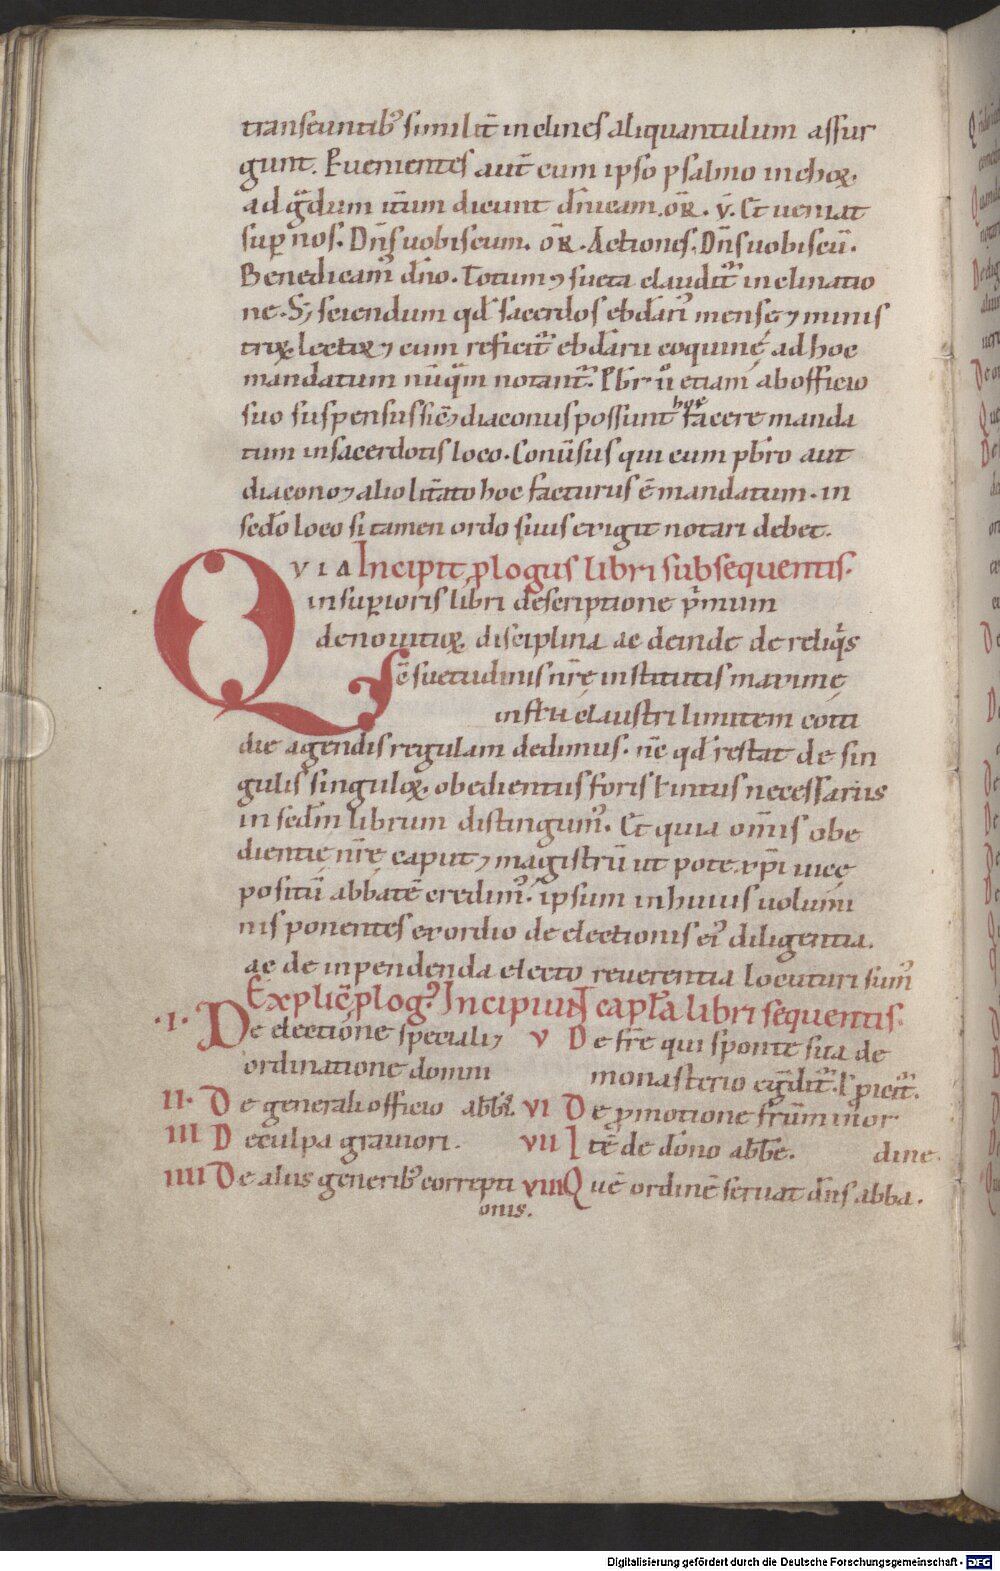 transeuntib; similit̄ inclines aliquantulum assur
gunt. P̄uenientes aut̄ cum ipso psalmo in choꝝ.
ad gͣdum it̄um dicunt dn̄icam. oR̄. v̄. Et ueniat
suꝑ nos. Dn̄s uobiscum. oR̄. Actiones. Dn̄s uobiscū.
Benedicam᾽ dn̄o. Totum ⁊ sueta claudit᾽ inclinatio
ne. S; sciendum qd̄ sacerdos ebd̄ari᾽ mense ⁊ minis
troꝝ lectoꝝ ⁊ cum reficit᾽ ebd̄arii coquinę ad hoc
mandatum nūqͣm notant᾽. Pbr̄ ů etiam ab officio
suo suspensus sic̄ ⁊ diaconus possunt hoc facere manda
tum in sacerdotis loco. Conūsus qui cum pbr̄o aut
diacono ⁊ alio lit̄ato hoc facturus ē mandatum. in
scd̄o loco si tamen ordo suus exigit notari debet.
QVIA Incipit ꝓlogus libri subsequentis.
in suꝑioris libri descriptione p̄mum
de nouitioꝝ disciplina ac deinde de reliqͥs
ꝯsuetudinis nr̄ę institutis maxime
infra claustri limitem coti
die agendis regulam dedimus. nc̄ qd̄ restat de sin
gulis singuloꝝ obedientiis foris ł intus necessariis
in scd̄m librum distingum᾽. Et quia om̄is obe
dientię nr̄ę caput ⁊ magistrū ut pote xp̄i uice
positū abbatē credim᾽. ipsum in huius uolumi
nis ponentes exordio de electionis ei᾽ diligentia.
ac de inpendenda electo reuerentia locuturi sum᾽
Explic̄ ꝓlog᾽. Incipiunt capl̄a libri sequentis.
.I. De electione speciali ⁊
ordinatione domni
II. De generali officio abb̄is.
III De culpa grauiori.
IIII De aliis generib; correpti
onis.
V De fr̄e qui sponte sua de
monasterio egͣdit᾽. ł p̄icit᾽.
VI De ꝓmotione fr̄um in or
dine.
VII Itē de dōno abb̄e.
VIII Quē ordinē seruat dn̄s abba.
Digitalisierung gefördert durch die Deutsche Forschungsgemeinschaft - DFG